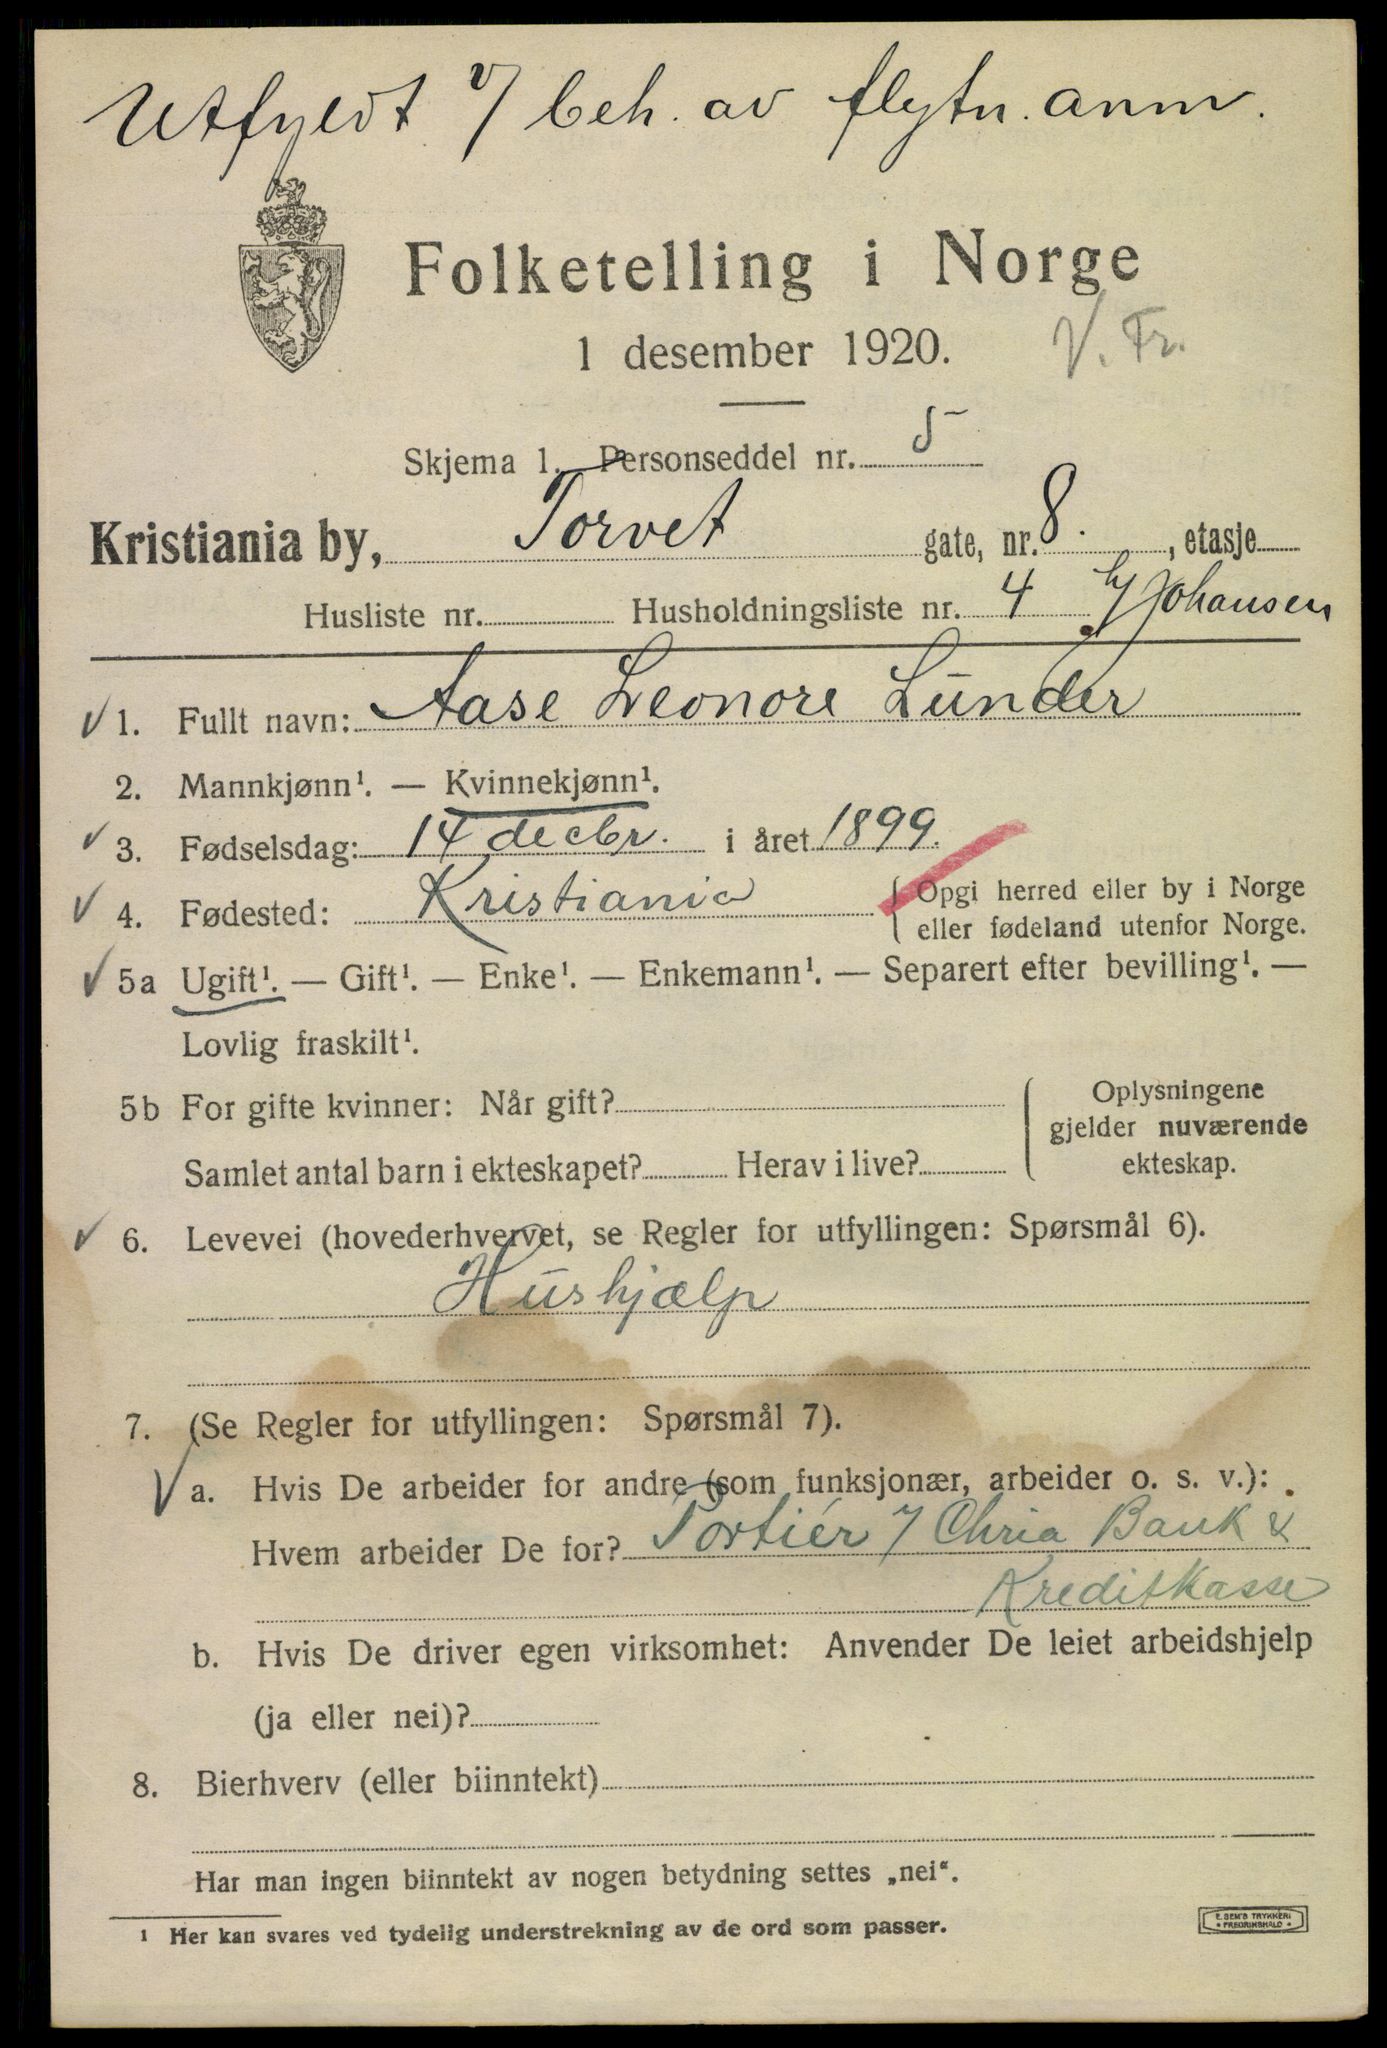 Utfyldt v/ beh. av flytn. anm.
Folketelling i Norge
1 desember 1920.
V. Fr.
Skjema 1. Personseddel nr. 5
Kristiania by, Torvet gate, nr. 8. , etasje
Husliste nr. Husholdningsliste nr. 4 h/ Johansen
1. Fullt navn: Aase Leonore Lunder
2. Mannkjønn¹. — Kvinnekjønn¹.
3. Fødselsdag: 14 decbr. i året 1899.
4. Fødested: Kristiania { Opgi herred eller by i Norge
eller fødeland utenfor Norge.
5a Ugift¹. — Gift¹. — Enke¹. — Enkemann¹. — Separert efter bevilling¹. —
Lovlig fraskilt¹.
5b For gifte kvinner: Når gift? Oplysningene
gjelder nuværende
Samlet antal barn i ekteskapet? Herav i live? ekteskap.
6. Levevei (hovederhvervet, se Regler for utfyllingen: Spørsmål 6).
Hushjælp
7. (Se Regler for utfyllingen: Spørsmål 7).
a. Hvis De arbeider for andre (som funksjonær, arbeider o. s. v.):
Hvem arbeider De for? Portiér / Chria Bank &
Kreditkasse
b. Hvis De driver egen virksomhet: Anvender De leiet arbeidshjelp
(ja eller nei)?
8. Bierhverv (eller biinntekt)
Har man ingen biinntekt av nogen betydning settes „nei“.
¹ Her kan svares ved tydelig understrekning av de ord som passer.
E. SEM'S TRYKKERI
• FREDRIKSHALD •